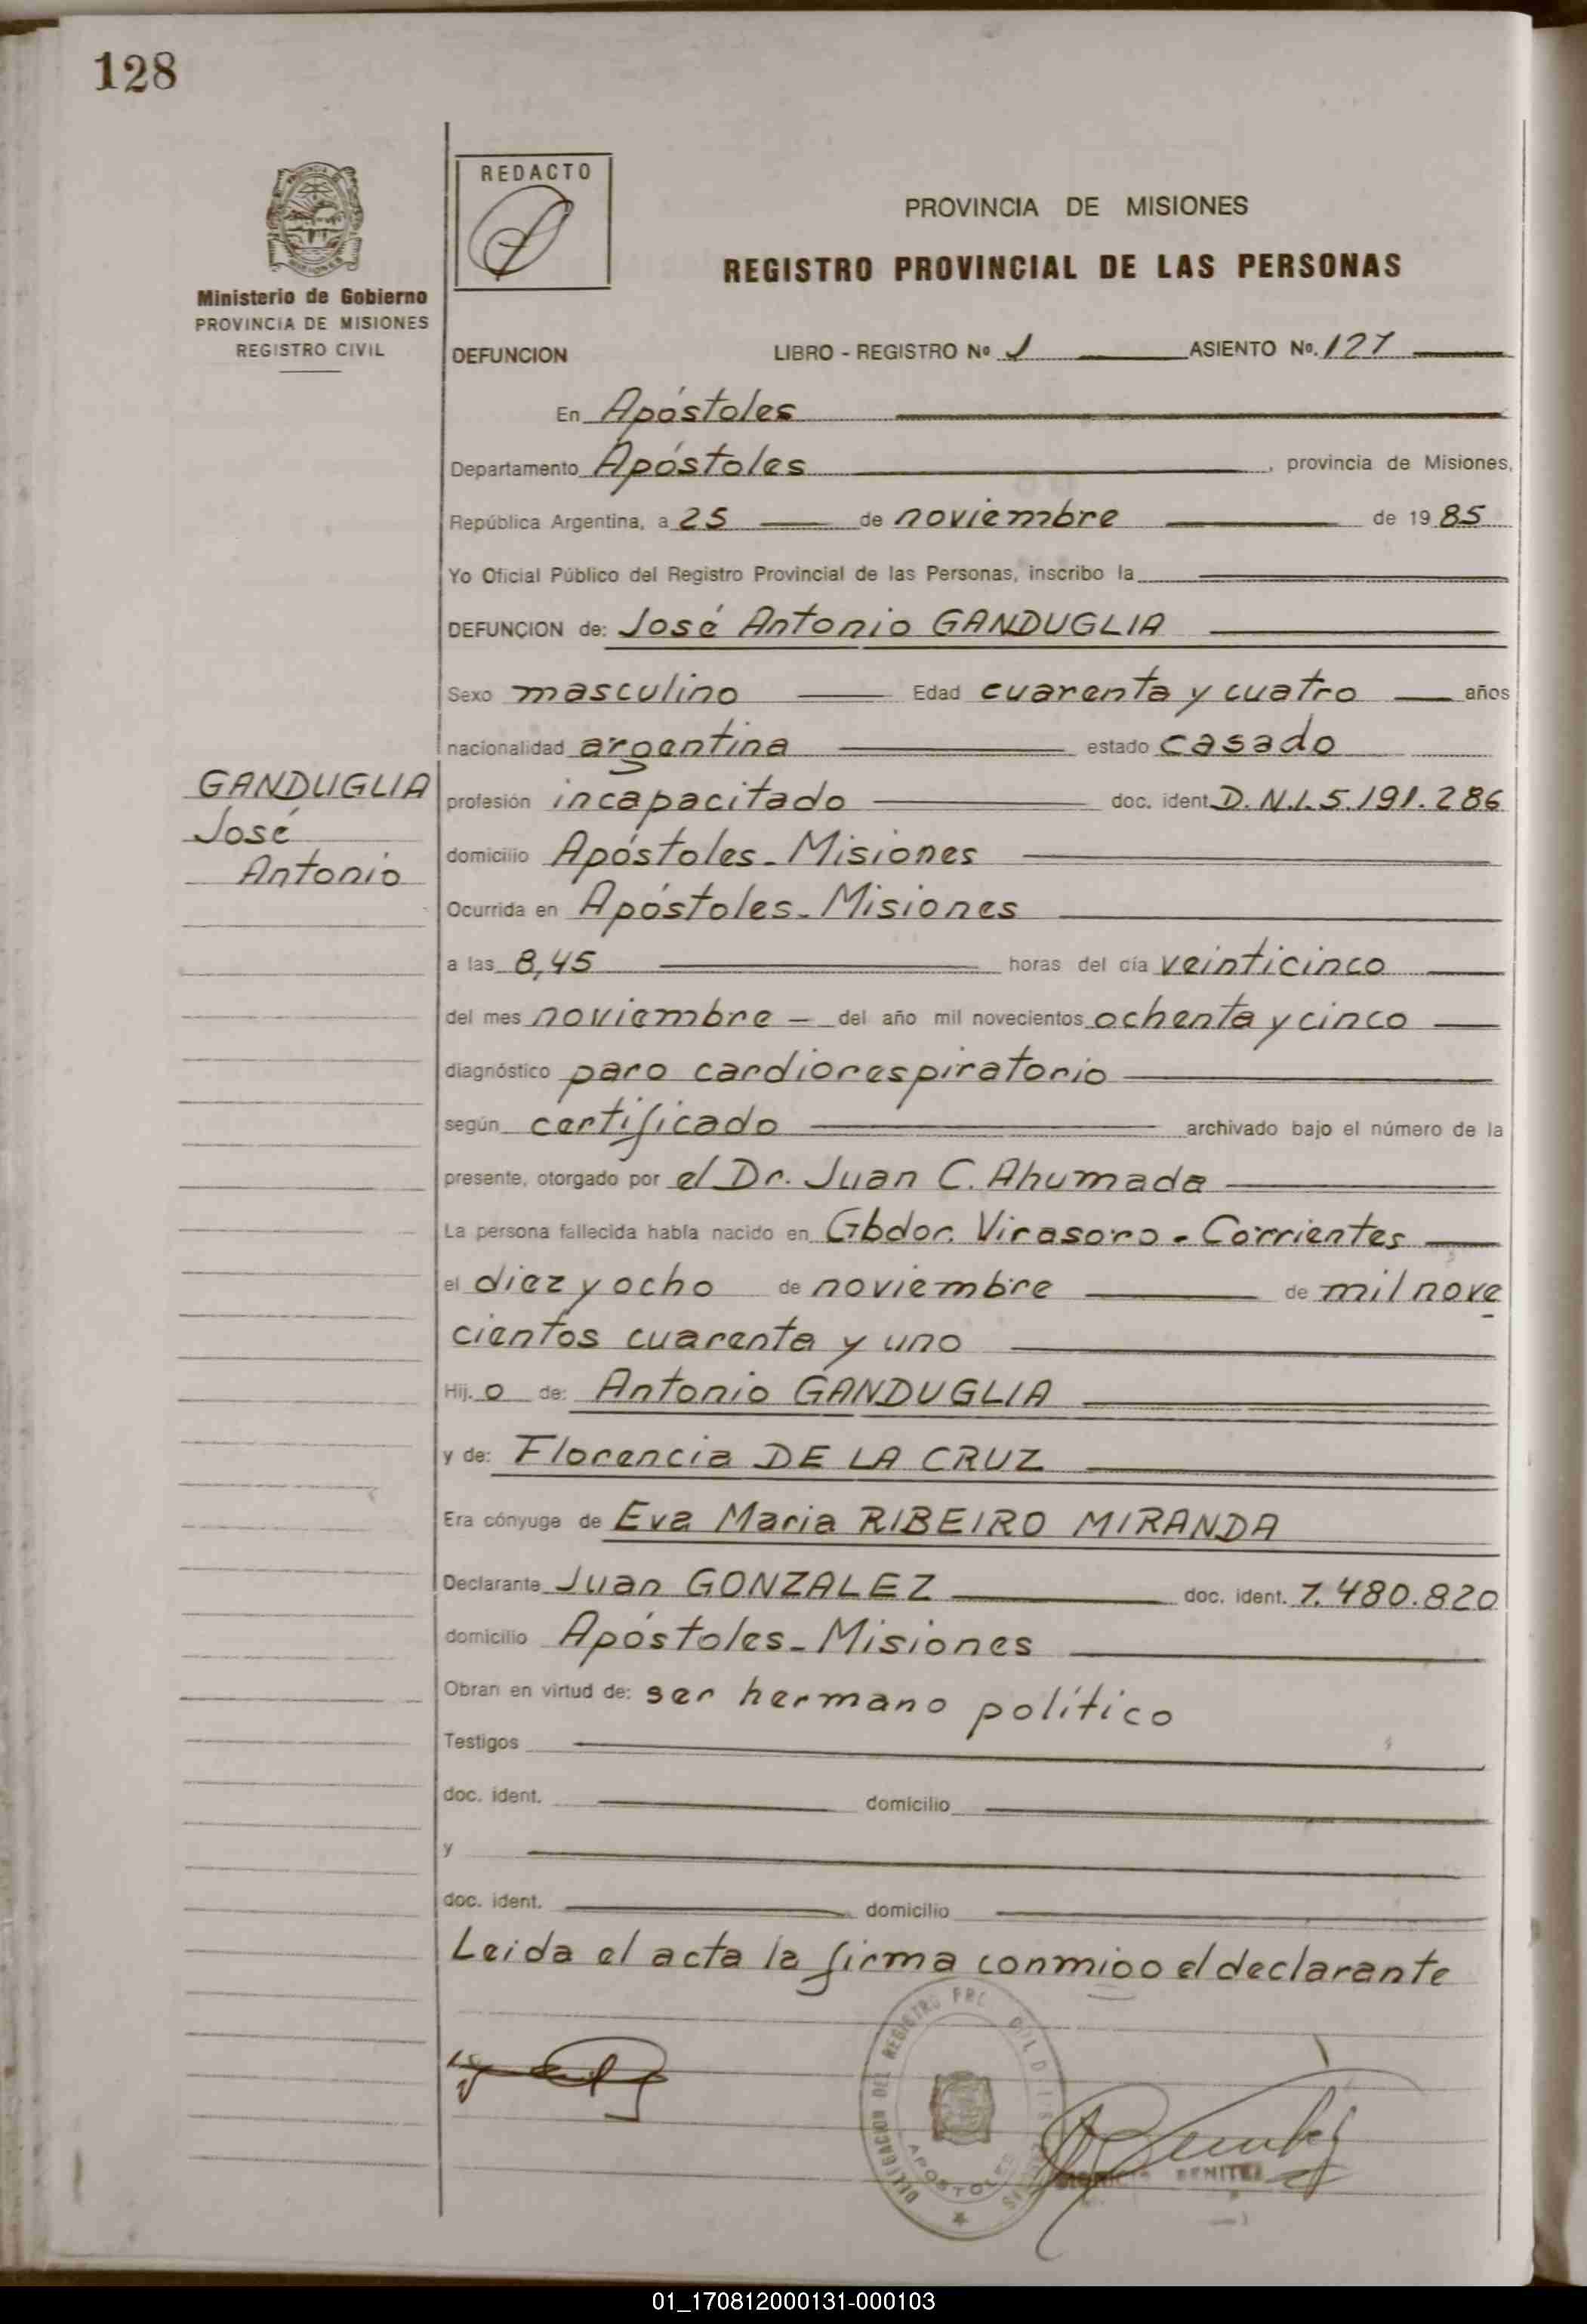 128
REDACTO
PROVINCIA DE MISIONES
REGISTRO PROVINCIAL DE LAS PERSONAS
Ministerio de Gobierno
PROVINCIA DE MISIONES
REGISTRO CIVIL
DEFUNCION LIBRO - REGISTRO Nº 1 ASIENTO Nº. 127
En Apóstoles
Departamento Apóstoles, provincia de Misiones,
República Argentina, a 25 de noviembre de 1985
Yo Oficial Público del Registro Provincial de las Personas, inscribo la
DEFUNCION de: José Antonio GANDUGLIA
Sexo masculino Edad cuarenta y cuatro años
nacionalidad argentina estado casado
GANDUGLIA
José
Antonio
profesión incapacitado doc. ident. D.N.I. 5.191.286
domicilio Apóstoles - Misiones
Ocurrida en Apóstoles - Misiones
a las 8,45 horas del día veinticinco
del mes noviembre - del año mil novecientos ochenta y cinco
diagnóstico paro cardiorespiratorio
según certificado archivado bajo el número de la
presente, otorgado por el Dr. Juan C. Ahumada
La persona fallecida había nacido en Gbdor. Virasoro - Corrientes
el diez y ocho de noviembre de mil nove
cientos cuarenta y uno
Hij. o de: Antonio GANDUGLIA
y de: Florencia DE LA CRUZ
Era cónyuge de Eva Maria RIBEIRO MIRANDA
Declarante Juan GONZALEZ doc. ident. 7.480.820
domicilio Apóstoles - Misiones
Obran en virtud de: ser hermano político
Testigos
doc. ident. domicilio
y
doc. ident. domicilio
Leida el acta la firma conmigo el declarante
DELEGACION DEL REGISTRO
APOSTOLES
BENITEZ
01_170812000131-000103